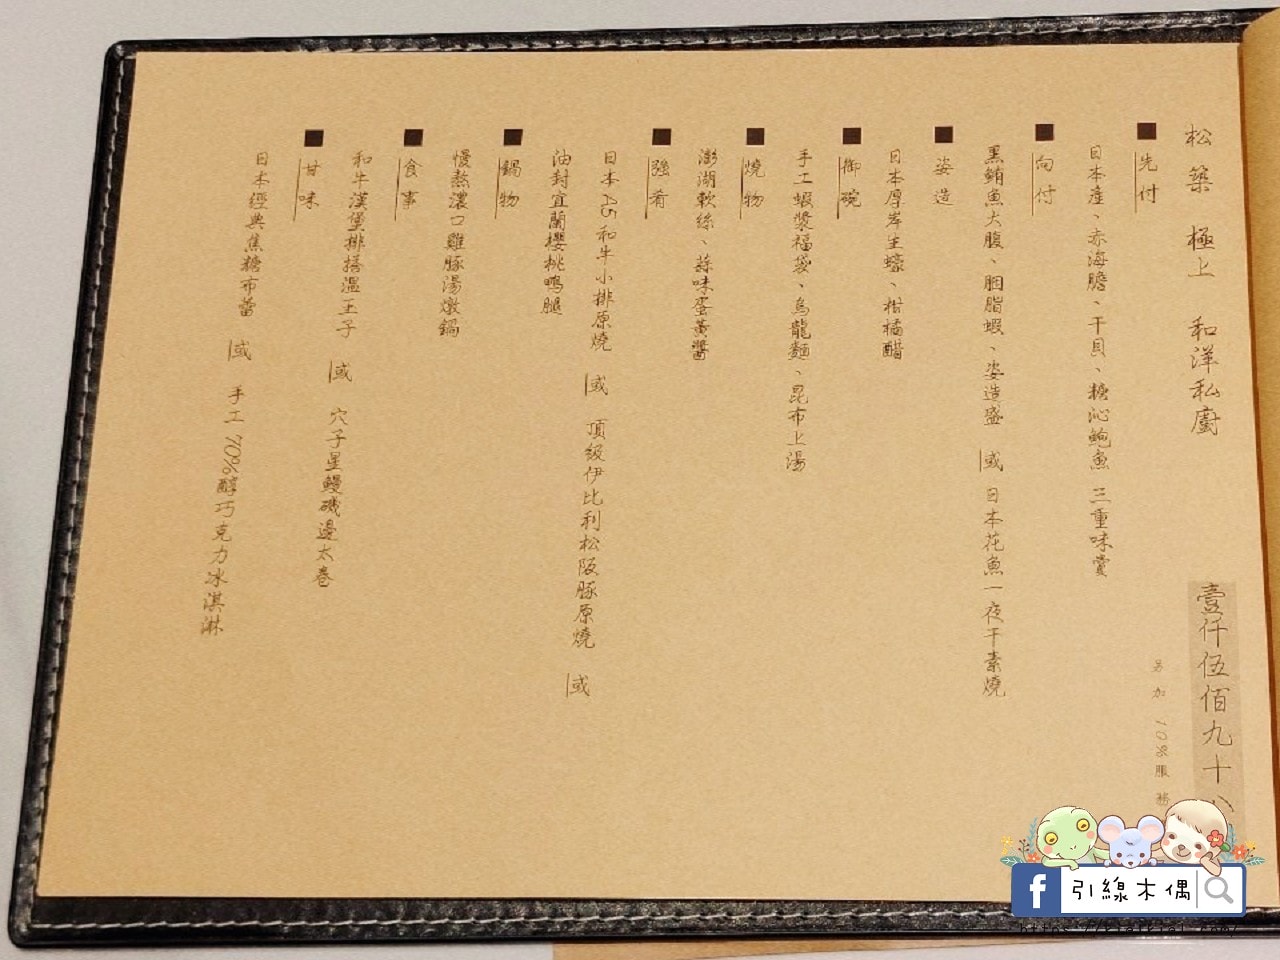 松築 極上 和洋私廚
壹仟伍佰九十八
另加 10%服務
■先付
日本產、赤海膽、干貝、糖沁鮑魚 三重味賞
■向付
黑鮪魚大腹、胭脂蝦、姿造盛 或 日本花魚一夜干素燒
■姿造
日本厚岸生蠔、柑橘醋
■御碗
手工蝦漿福袋、烏龍麵、昆布上湯
■燒物
澎湖軟絲、蒜味蛋黃醬
■強肴
日本A5和牛小排原燒 或 頂級伊比利松阪豚原燒 或
油封宜蘭櫻桃鴨腿
■鍋物
慢熬濃口雞豚湯燉鍋
■食事
和牛漢堡排搭溫玉子 或 穴子星鰻磯邊太卷
■甘味
日本經典焦糖布蕾 或 手工70%醇巧克力冰淇淋
引線木偶